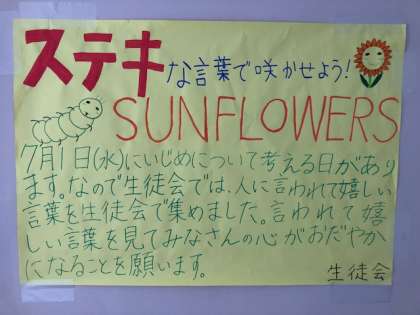 ステキな言葉で咲かせよう!
SUNFLOWERS
7月1日(水)にいじめについて考える日があり
ます。なので生徒会では、人に言われて嬉しい
言葉を生徒会で集めました。言われて嬉
しい言葉を見てみなさんの心がおだやか
になることを願います。
生徒会